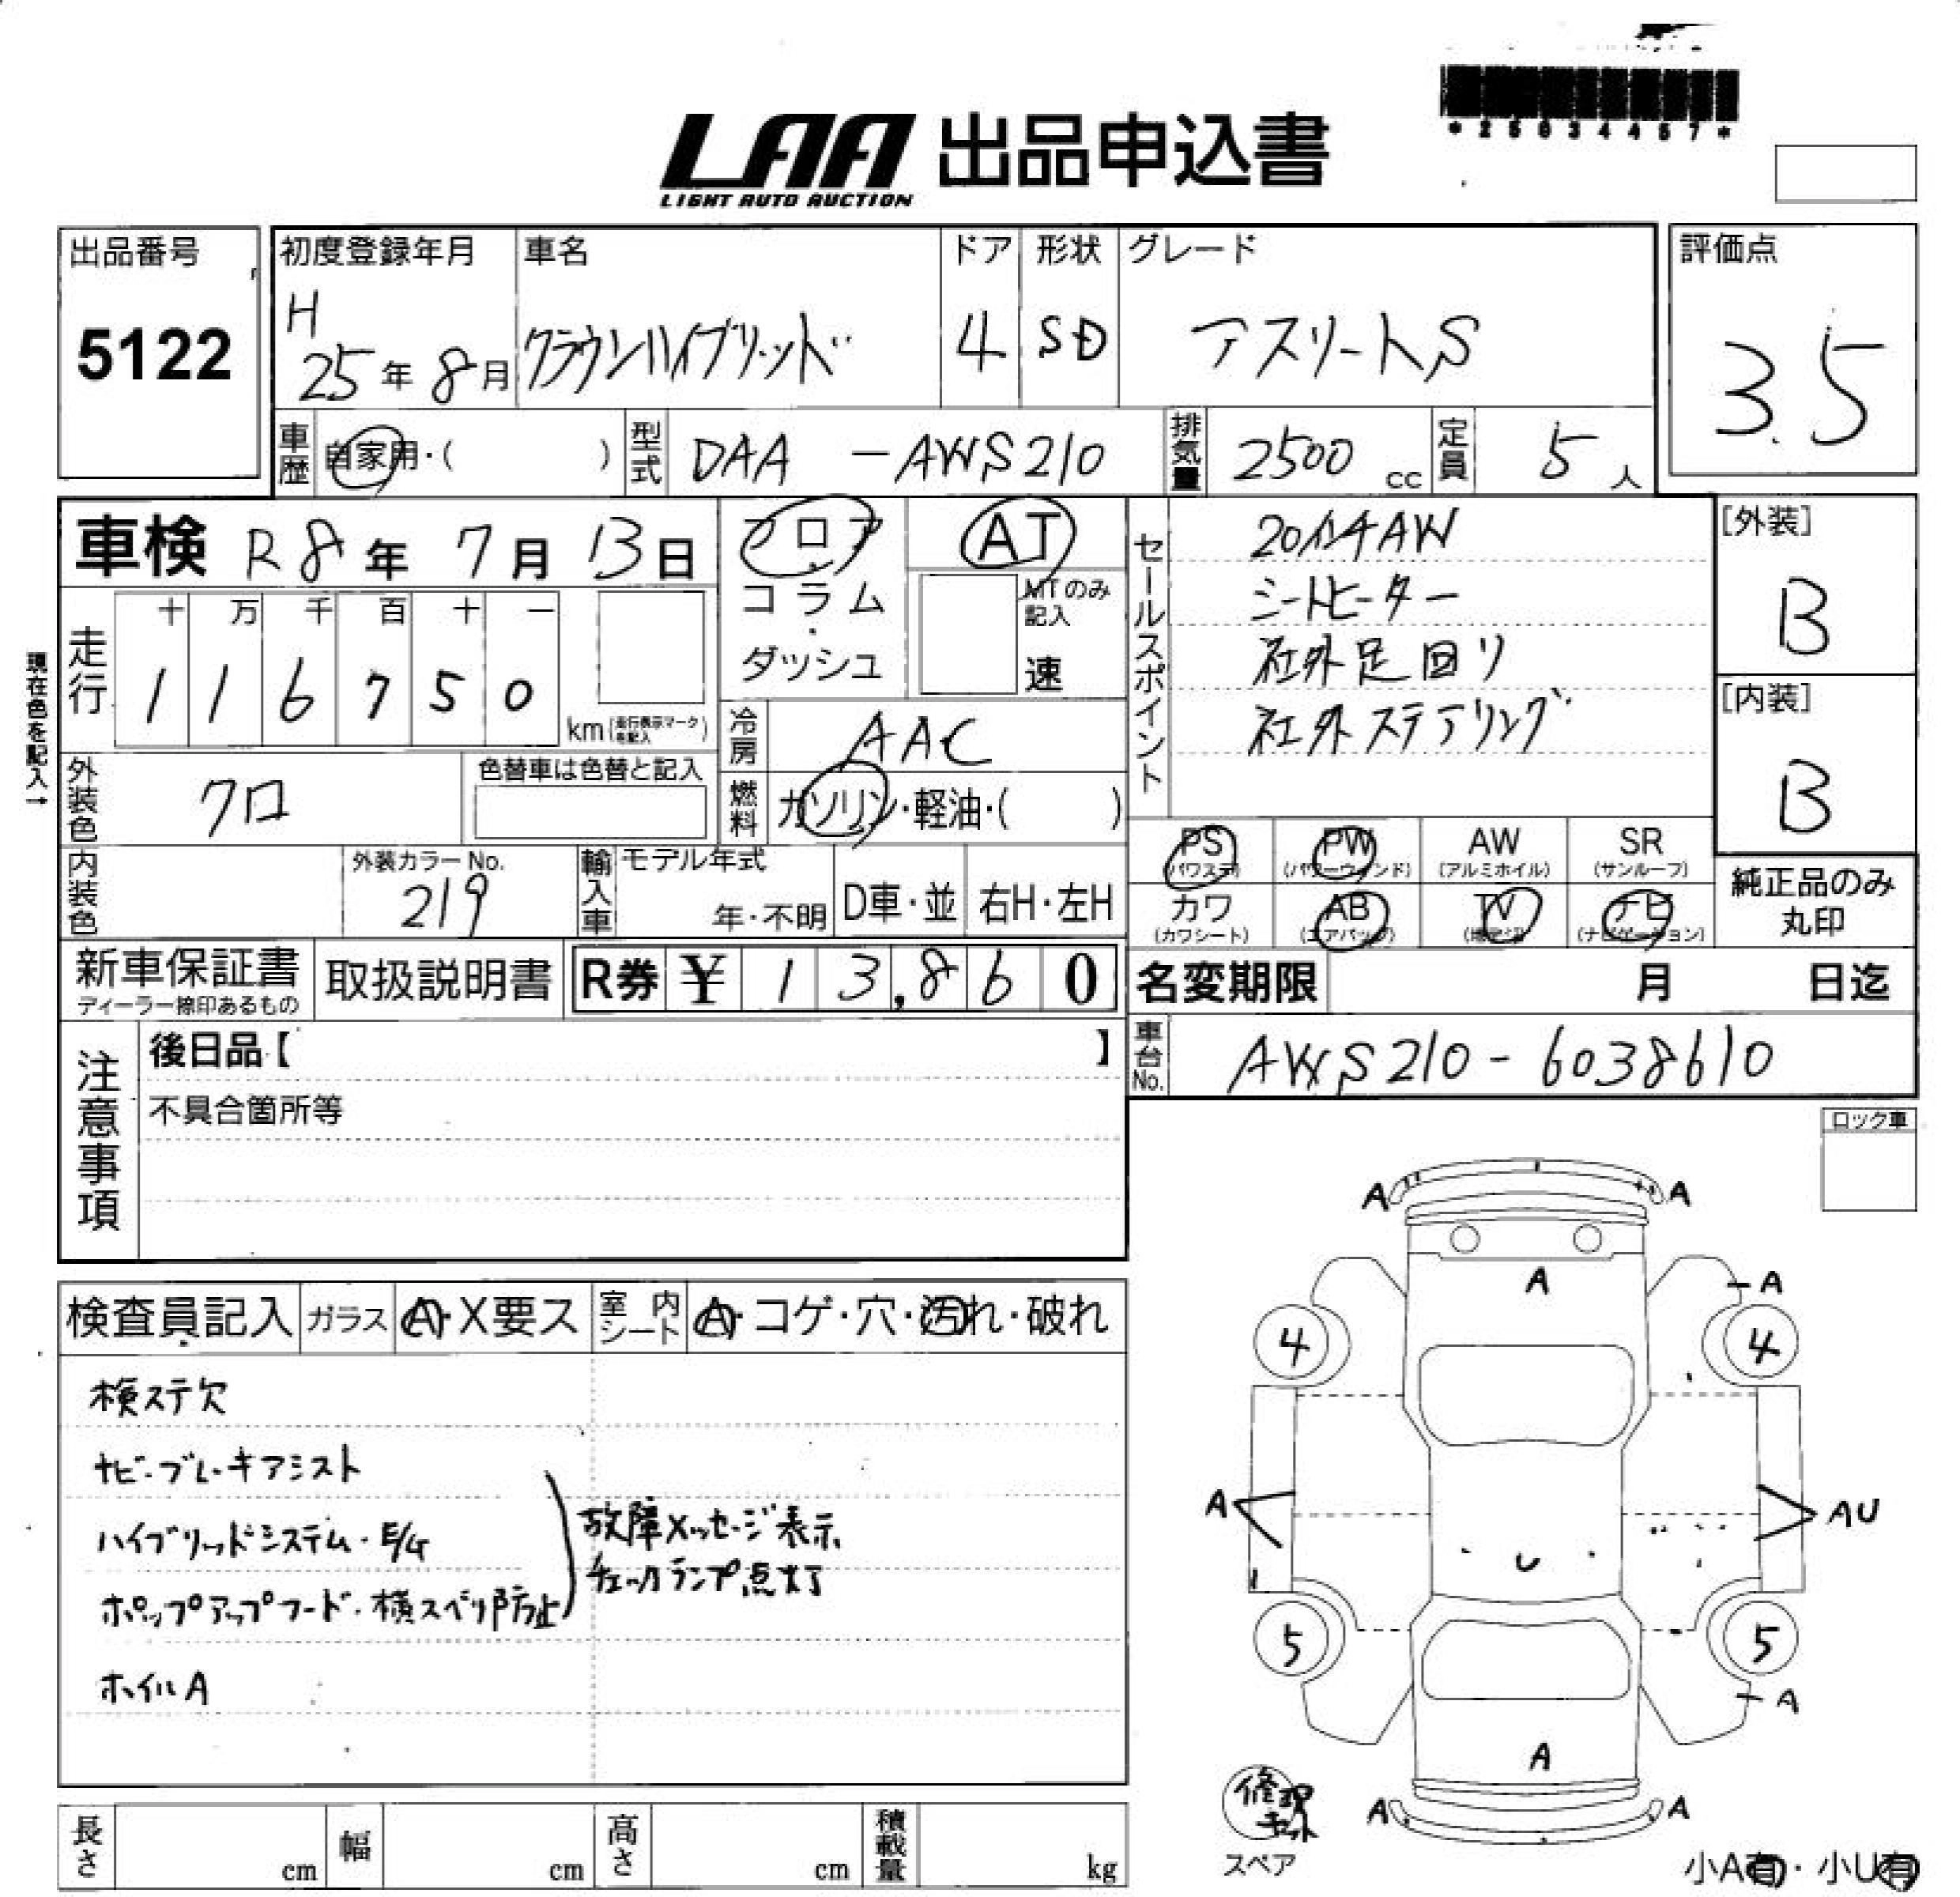 *25034457*
LAA 出品申込書
LIGHT AUTO AUCTION
出品番号
5122
初度登録年月
H
25年 8月
車名
クラウンハイブリッド
ドア
4
形状
SD
グレード
アスリートS
評価点
3.5
車歴 自家用・( )
型式 DAA -AWS210
排気量 2500 cc
定員 5人
車検 R8年 7月 13日
走行
十 万 千 百 十 一
1 1 6 7 5 0
km(走行表示マークを記入)
現在色を記入→
フロア
・
コラム
・
ダッシュ
AT
MTのみ記入
速
冷房 AAC
燃料 ガソリン・軽油・( )
セールスポイント
20インチAW
シートヒーター
社外足回り
社外ステアリング
[外装]
B
[内装]
B
外装色 クロ
色替車は色替と記入
内装色
外装カラーNo.
219
輸入車
モデル年式
年・不明
D車・並
右H・左H
PS (パワステ)
PW (パワーウィンド)
AW (アルミホイル)
SR (サンルーフ)
カワ (カワシート)
AB (エアバッグ)
TV
ナビ (ナビゲーション)
純正品のみ
丸印
新車保証書
ディーラー捺印あるもの
取扱説明書
R券 ¥ 13,860
名変期限 月 日迄
車台No. AWS210-6038610
注意事項
後日品【 】
不具合箇所等
ロック車
検査員記入
ガラス
A・X要ス
室内シート
A・コゲ・穴・汚れ・破れ
検ステ欠
ナビ・ブレーキアシスト
ハイブリッドシステム・E/G
ポップアップフード・横スベリ防止
故障メッセージ表示、
チェックランプ点灯
ホイルA
A
A
A
A
4
4
A
AU
U
5
5
A
A
A
A
修理キット
スペア
小A有・小U有
長さ cm
幅 cm
高さ cm
積載量 kg